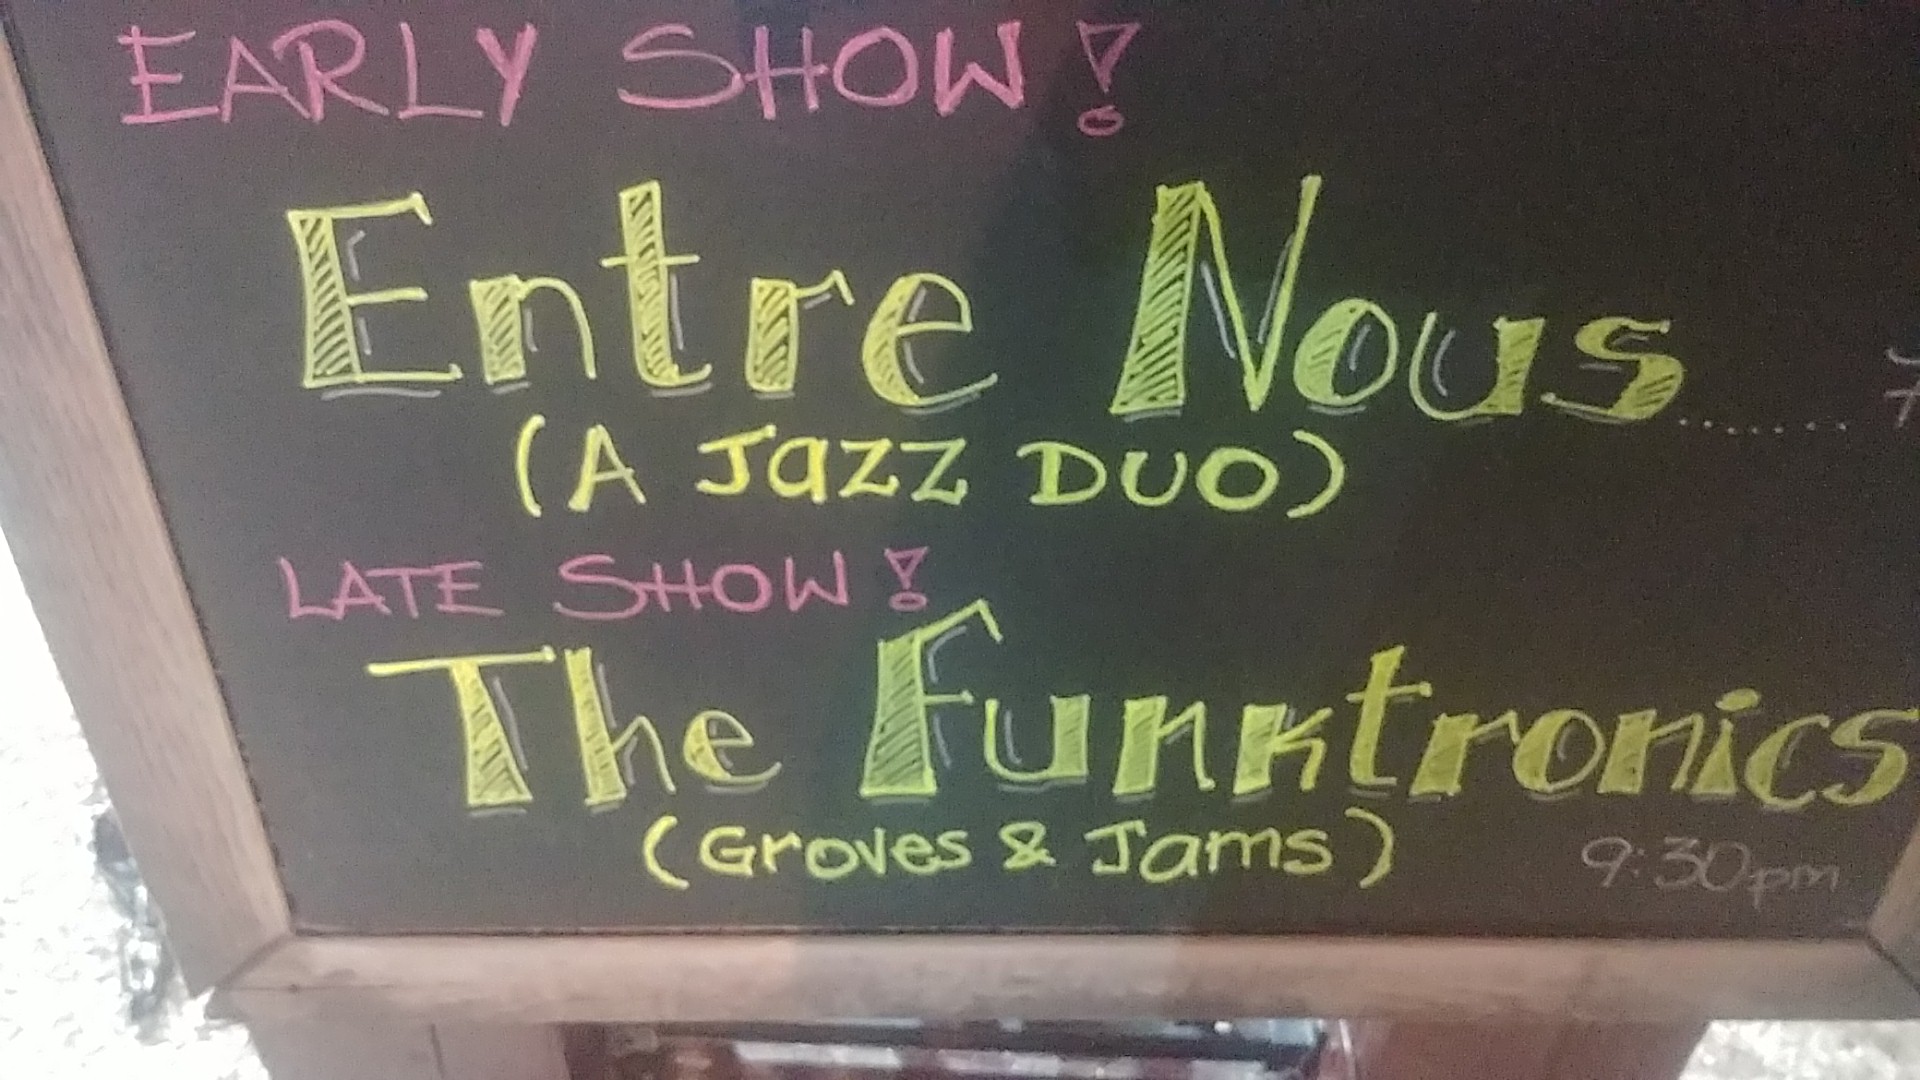 EARLY SHOW!
Entre Nous........
(A Jazz DUO)
LATE SHOW!
The Funktronics
(Groves & Jams)
9:30pm